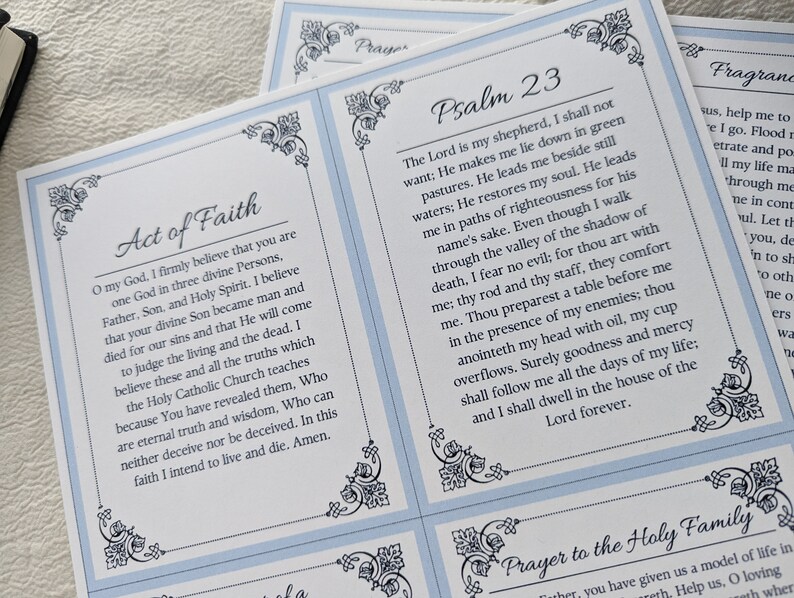 Act of Faith
O my God, I firmly believe that you are
one God in three divine Persons,
Father, Son, and Holy Spirit. I believe
that your divine Son became man and
died for our sins and that He will come
to judge the living and the dead. I
believe these and all the truths which
the Holy Catholic Church teaches
because You have revealed them, Who
are eternal truth and wisdom, Who can
neither deceive nor be deceived. In this
faith I intend to live and die. Amen.
Psalm 23
The Lord is my shepherd, I shall not
want; He makes me lie down in green
pastures. He leads me beside still
waters; He restores my soul. He leads
me in paths of righteousness for his
name's sake. Even though I walk
through the valley of the shadow of
death, I fear no evil; for thou art with
me; thy rod and thy staff, they comfort
me. Thou preparest a table before me
in the presence of my enemies; thou
anointeth my head with oil, my cup
overflows. Surely goodness and mercy
shall follow me all the days of my life;
and I shall dwell in the house of the
Lord forever.
Prayer to the Holy Family
Father, you have given us a model of life in
Help us, O loving
where
of a
Prayer
Fragranc
sus, help me to
e I go. Flood m
etrate and po
ll my life ma
through me
e in cont
oul. Let th
you, de
in to sh
o othe
one o
hers